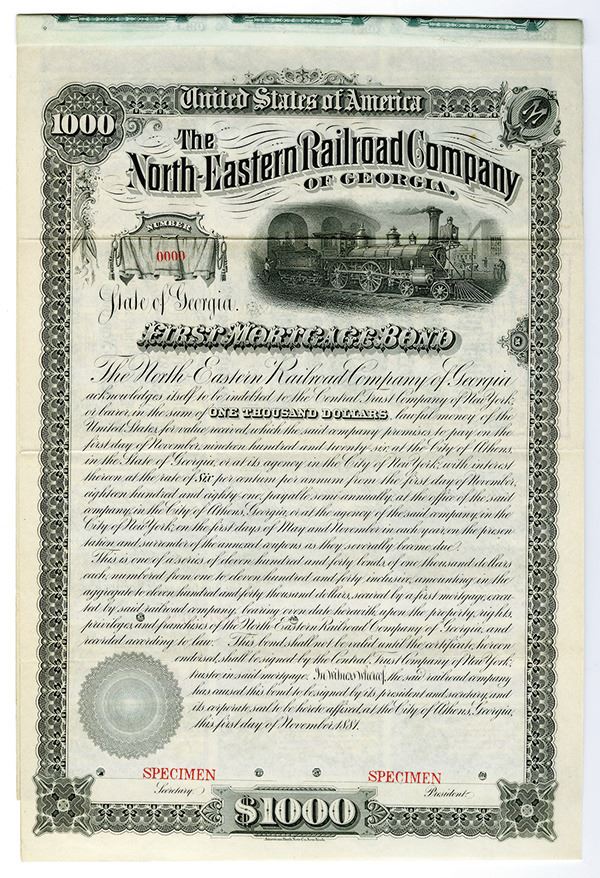 United States of America
1000
The
North-Eastern Railroad Company
OF GEORGIA.
NUMBER
0000
State of Georgia.
FIRST MORTGAGE BOND
The North-Eastern Railroad Company of Georgia
acknowledges itself to be indebted to the Central Trust Company of New York,
or bearer, in the sum of ONE THOUSAND DOLLARS, lawful money of the
United States, for value received, which the said company promises to pay on the
first day of November, nineteen hundred and twenty six, at the City of Athens,
in the State of Georgia, or at its agency in the City of New York, with interest
thereon at the rate of Six per centum per annum from the first day of November,
eighteen hundred and eighty one, payable semi-annually, at the office of the said
company, in the City of Athens, Georgia, or at the agency of the said company, in the
City of New York, on the first days of May and November in each year, on the presen-
tation and surrender of the annexed coupons as they severally become due.
This is one of a series of eleven hundred and forty bonds, of one thousand dollars
each, numbered from one to eleven hundred and forty inclusive, amounting in the
aggregate to eleven hundred and forty thousand dollars, secured by a first mortgage, execu-
ted by said railroad company, bearing even date herewith, upon the property, rights,
privileges and franchises of the North-Eastern Railroad Company of Georgia, and
recorded according to law. This bond shall not be valid until the certificate, hereon
endorsed, shall be signed by the Central Trust Company of New York,
trustee in said mortgage. In witness whereof, the said railroad company
has caused this bond to be signed by its president and secretary, and
its corporate seal to be hereto affixed, at the City of Athens, Georgia,
this first day of November, 1881.
SPECIMEN SPECIMEN
Secretary. President.
$1000
American Bank Note Co. New York.